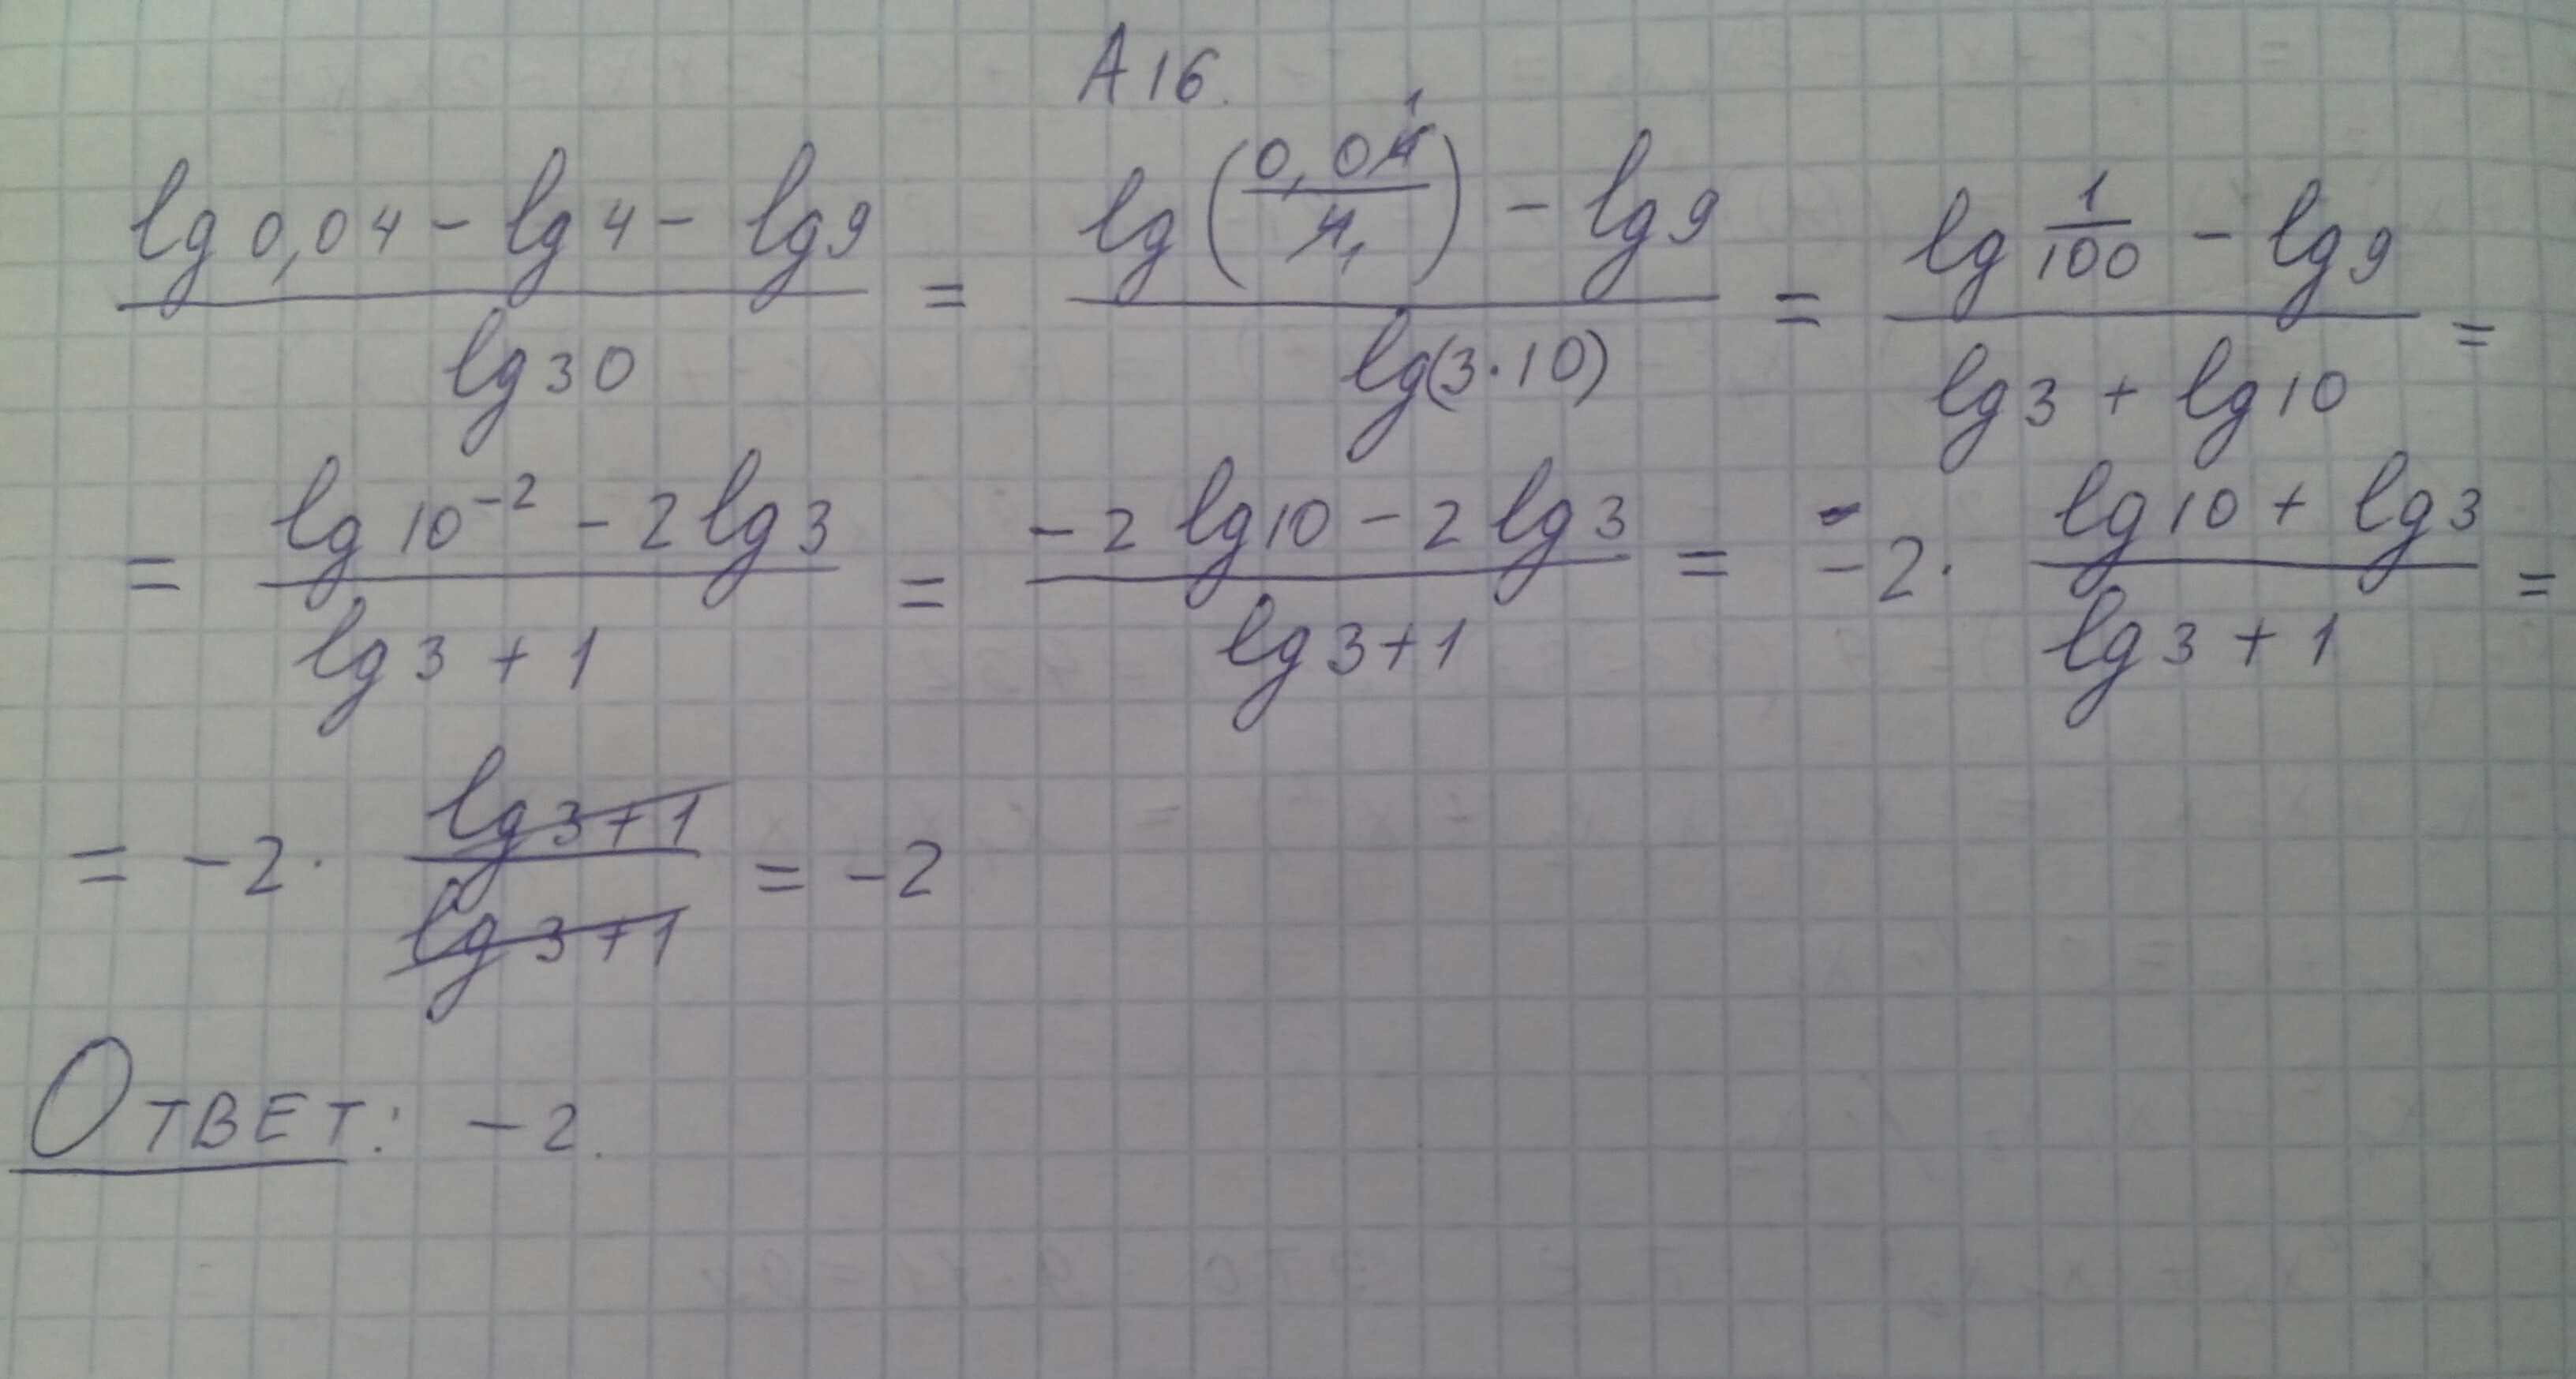 A16.
(lg 0,04 - lg 4 - lg 9)/(lg 30) = (lg (0,04/4) - lg 9)/(lg(3·10)) = (lg 1/100 - lg 9)/(lg 3 + lg 10) =
= (lg 10⁻² - 2 lg 3)/(lg 3 + 1) = (-2 lg 10 - 2 lg 3)/(lg 3 + 1) = -2 · (lg 10 + lg 3)/(lg 3 + 1) =
= -2 · (lg 3 + 1)/(lg 3 + 1) = -2
Ответ: -2.